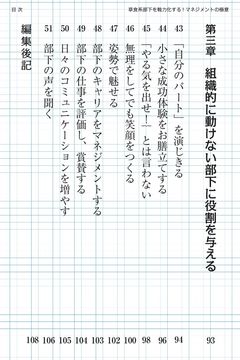 目次
草食系部下を戦力化する!マネジメントの極意
第三章 組織的に動けない部下に役割を与える 93
43 「自分のパート」を演じきる 94
44 小さな成功体験をお膳立てする 96
45 「やる気を出せ!」とは言わない 98
46 無理をしてでも笑顔をつくる 100
47 姿勢で魅せる 102
48 部下のキャリアをマネジメントする 103
49 部下の仕事を評価し、賞賛する 104
50 日々のコミュニケーションを増やす 105
51 部下の声を聞く 106
編集後記 108